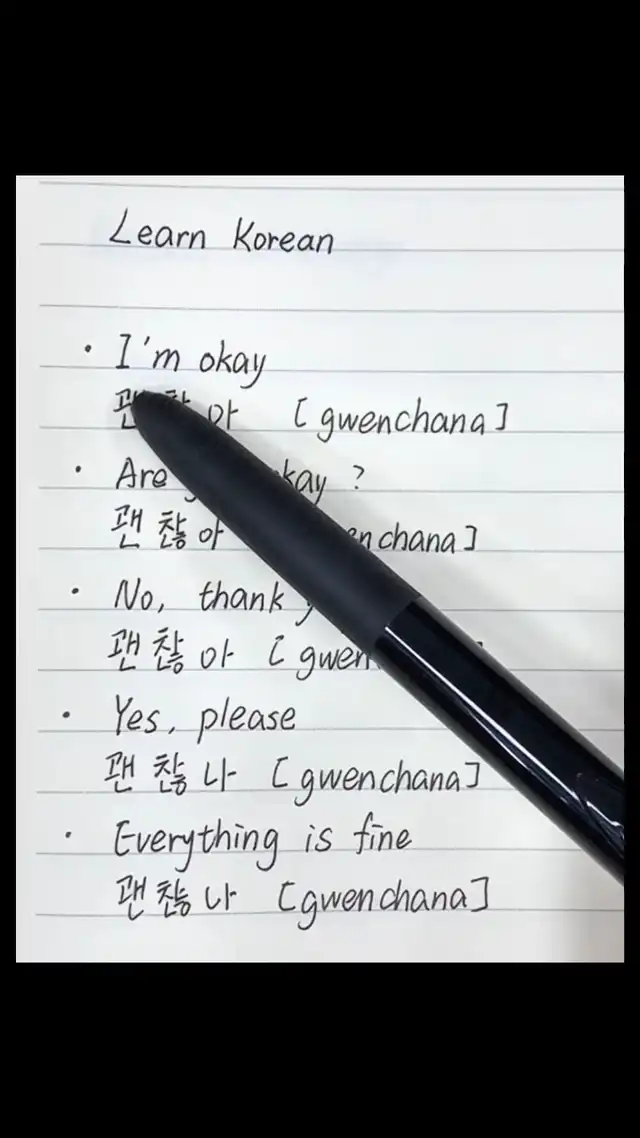 Learn Korean
• I'm okay
[gwenchana]
• Are okay ?
괜찮아
• No, thank
괜찮아
• Yes, please
괜찮나 [gwenchana]
• Everything is fine
괜찮나 [gwenchana]